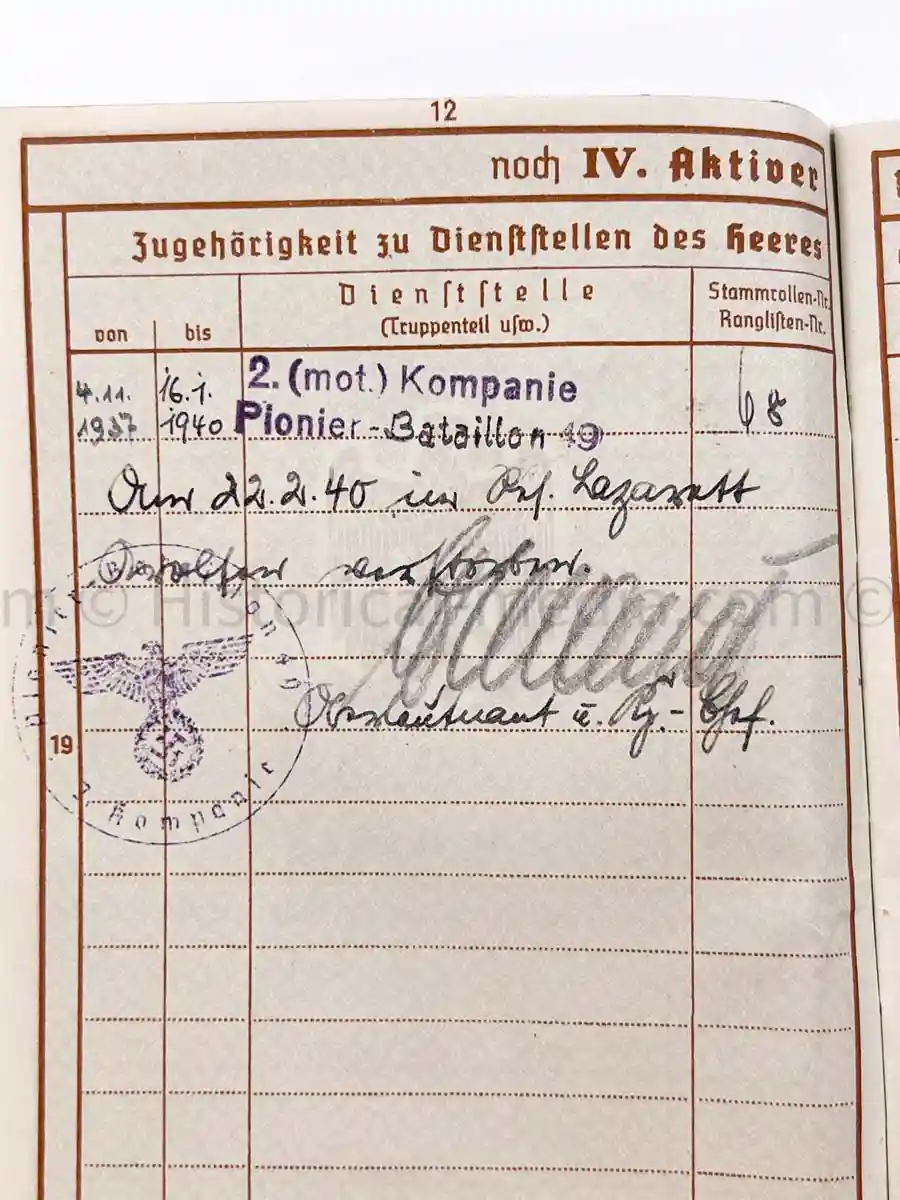 12
noch IV. Aktiver
Zugehörigkeit zu Dienststellen des Heeres
von bis Dienststelle (Truppenteil usw.) Stammrollen-Nr. Ranglisten-Nr.
4.11. 16.1. 2. (mot.) Kompanie
1937 1940 Pionier-Bataillon 49 68
Am 22.2.40 im Res. Lazarett
verstorben.
Oberleutnant u. Kp.-Chef.
19
Kompanie
© Historica-media.com ©